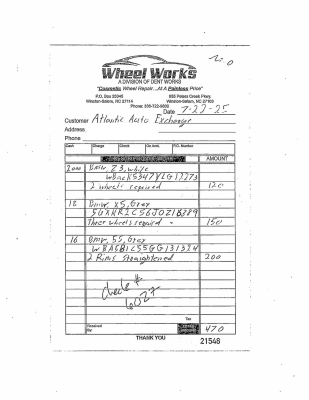 Wheel Works
A DIVISION OF DENT WORKS
"Cosmetic Wheel Repair...At A Painless Price"
P.O. Box 25045 955 Peters Creek Pkwy.
Winston-Salem, NC 27114 Winston-Salem, NC 27103
Phone: 336-722-9600
Date 7-22-25
Customer Atlantic Auto Exchange
Address
Phone
Cash Charge Check On Acct. P.O. Number
AMOUNT
2000 Bmw, Z3, white
2 wheels repaired 120
18 Bmw, X5, Gray
Three wheels repaired - 150
16 Bmw, 5S, Gray
2 Rims straightened 200
check #
6027
Tax
Received
By 470
THANK YOU 21548